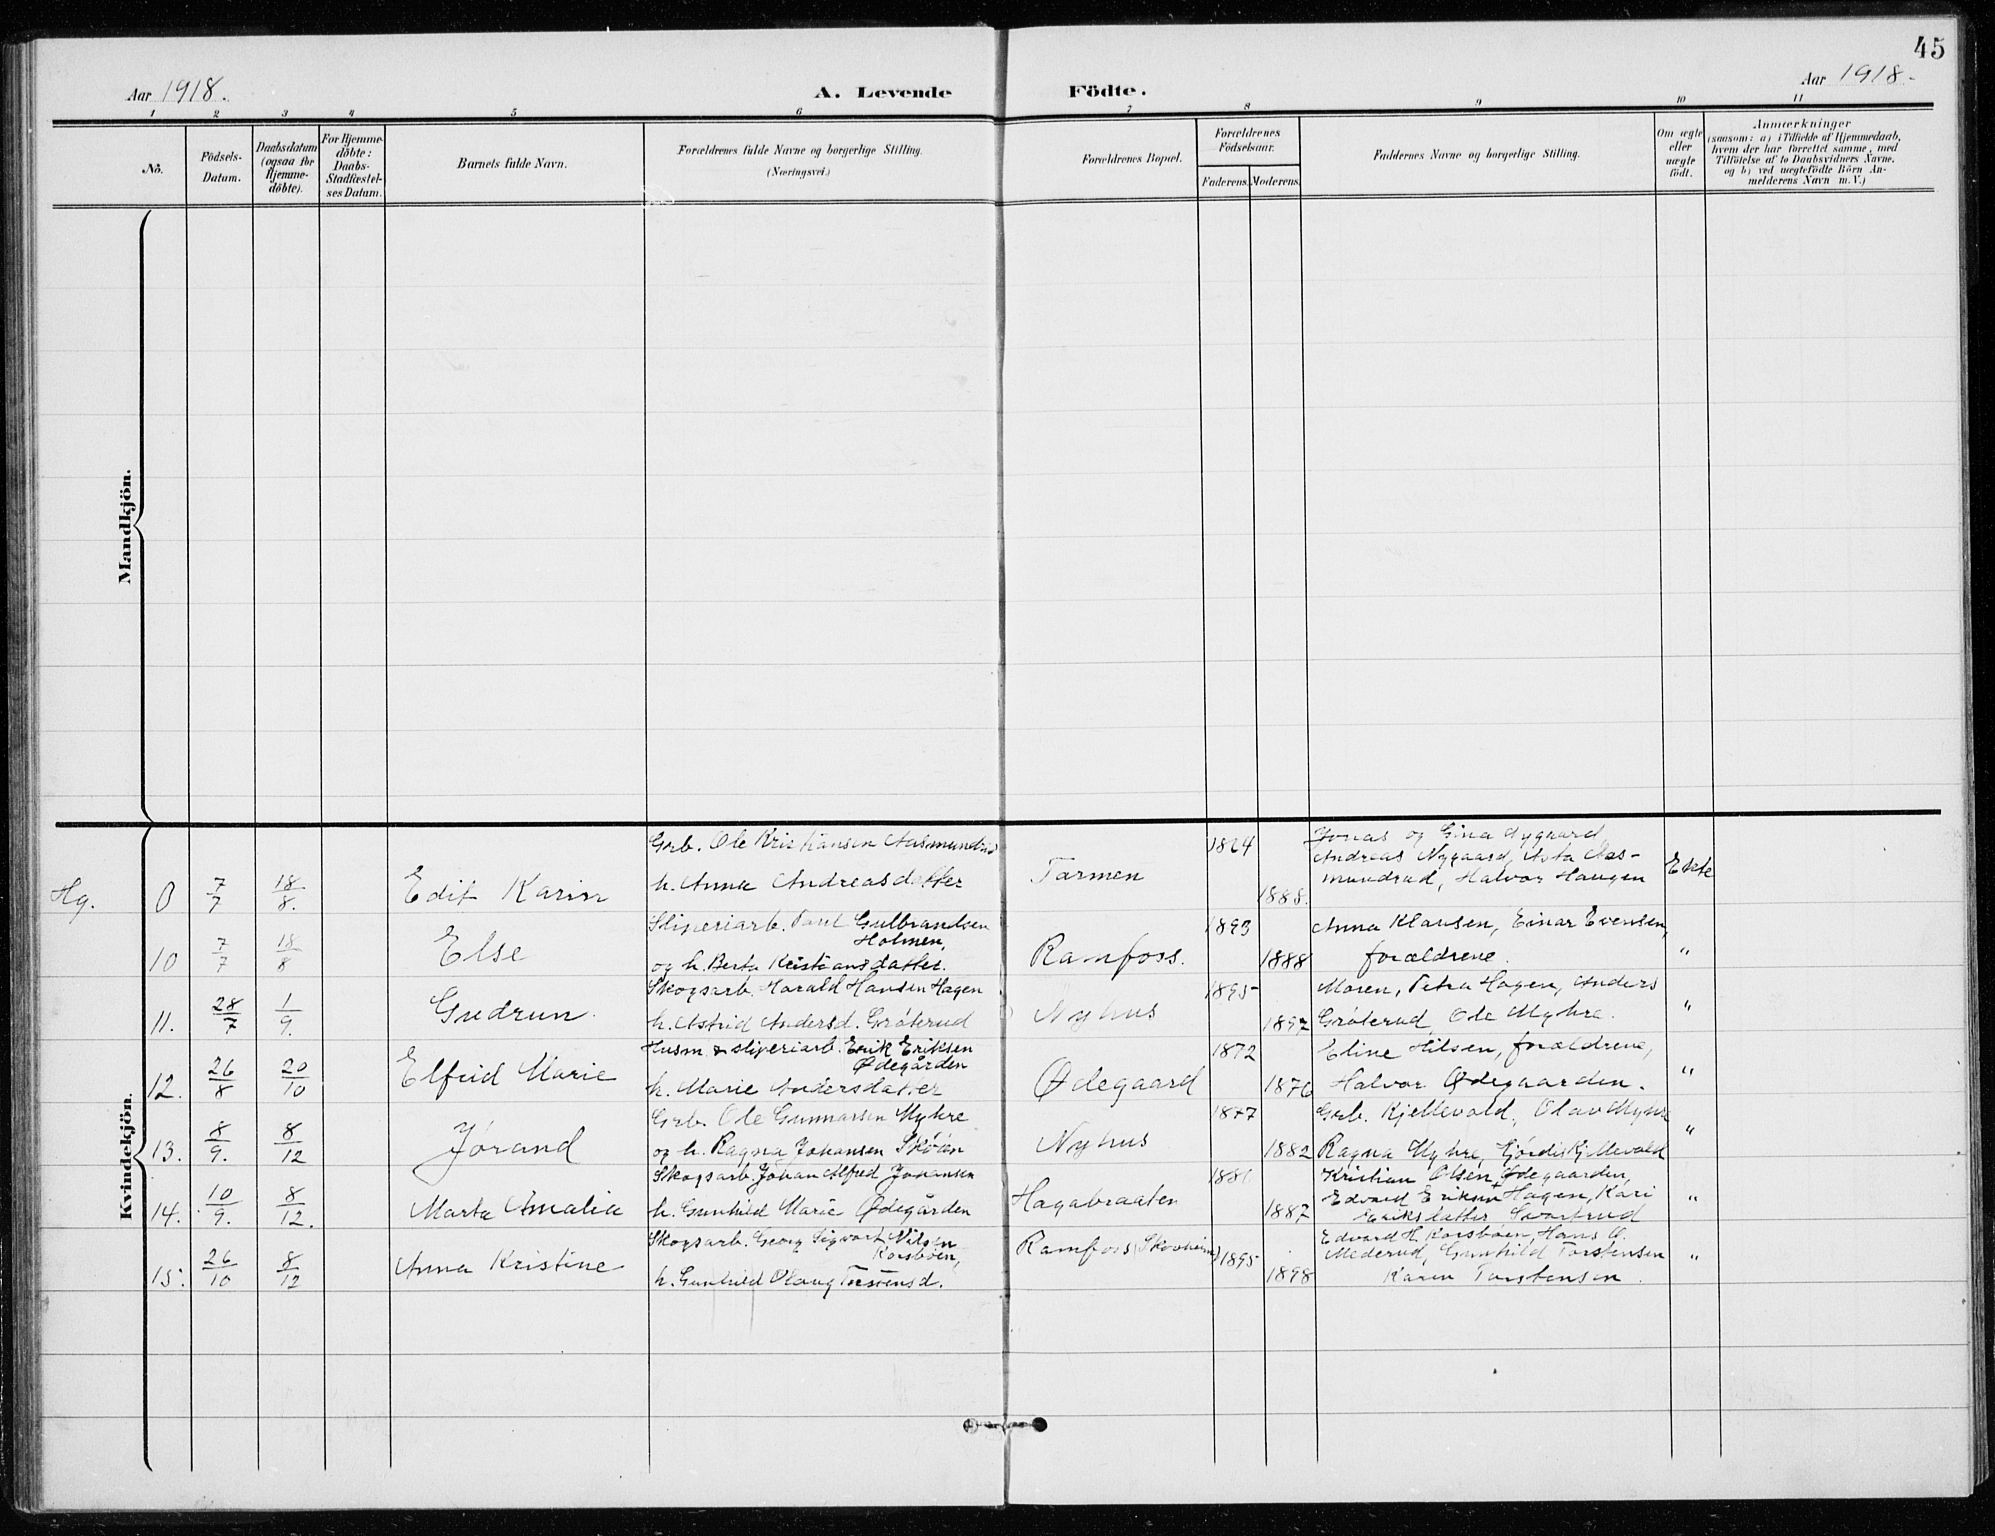 45
Aar 1918.
A. Levende Födte.
Aar 1918.
1 2 3 4 5 6 7 8 9 10 11
No.
Födsels-Datum.
Daabsdatum (ogsaa for Hjemme-döbte).
For Hjemme-döbte: Daabs-Stadfæstel-ses Datum.
Barnets fulde Navn.
Forældrenes fulde Navne og borgerlige Stilling.
(Næringsvei.)
Forældrenes Bopæl.
Forældrenes Födselsaar.
Faderens. Moderens.
Faddernes Navne og borgerlige Stilling.
Om ægte eller uægte födt.
Anmærkninger
(saasom: a) i Tilfælde af Hjemmedaab,
hvem der har forrettet samme, med
Tilföielse af to Daabsvidners Navne.
og b) ved uægtefödte Börn An-
melderens Navn m. V.)
Mandkjön.
Kvindekjön.
Grb. Ole Kristiansen Aasmundrud
1884
Jonas og Gina Nygaard
Andreas Nygaard, Asta Aas-
Hg. 7/7 18/8. Edit Karin h. Anna Andreasdatter Tarmen 1888. mundrud, Halvor Haugen Ekte
Sliperiarb. Paul Gulbrandsen
Holmen,
1893 Anna Klausen, Einar Evensen,
10 7/7 18/8 Else og h. Berta Kristiansdatter. Ramfoss. 1888 forældrene. "
Skogsarb. Harald Hansen Hagen 1895 Moren, Petra Hagen, Anders
11. 28/7 1/9. Gudrun. h. Astrid Andersd. Gröterud Nyhus 1897 Gröterud, Ole Myhre. "
Husm. & sliperiarb. Erik Eriksen
Ødegården
1872 Eline Nilsen, forældrene,
12. 26/8 20/10 Elfrid Marie h. Marie Andersdatter Ødegaard 1876 Halvor Ødegaarden. "
Grb. Ole Gunnarsen Myhre 1877 Grb. Kjellevold, Olav Myhre
13. 8/9. 8/12 Jørand og h. Ragna Johansen Nyhus 1882 Ragna Myhre, Hjördis Kjellevold "
Skogsarb. Johan Alfred Johansen 1881 Kristian Olsen Ødegaarden,
14. 10/9. 8/12. Marta Amalia h. Gunhild Marie Ødegården Hagabraaten 1887 Edvard Eriksen Hagen, Kari "
Eriksdatter
Skogsarb. Georg Sigvart Nilsen
Korsbøen,
Ramfoss (Skovheim) 1895 Edvard H. Korsbøen, Hans O.
15. 26/10 8/12 Anna Kristine h. Gunhild Olaug Torstensd. 1898 Mederud, Gunhild Torstensen "
Karen Torstensen